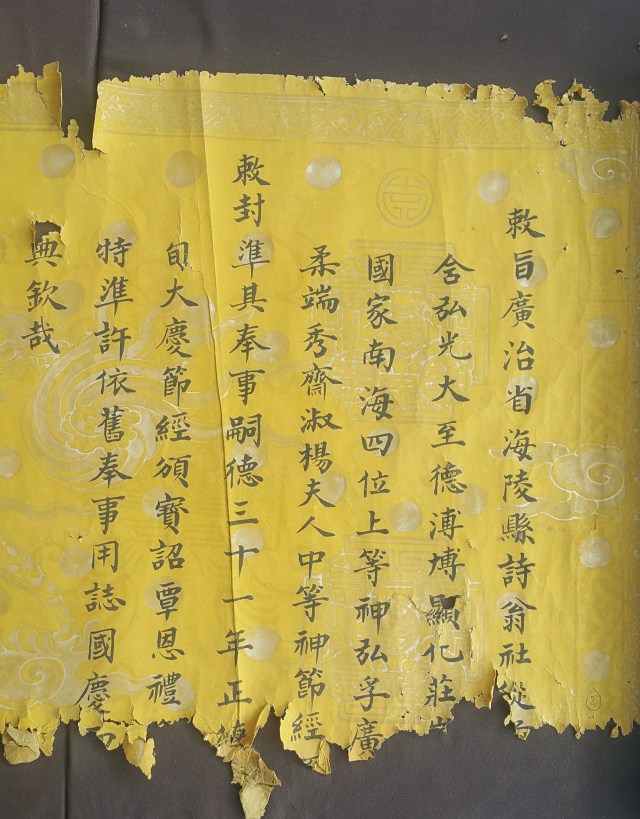 敕旨廣治省海陵縣詩翁社從
含弘光大至德溥博顯化莊
國家南海四位上等神弘孚廣
柔端秀齋淑楊夫人中等神節經
敕封準其奉事嗣德三十一年正
旬大慶節經頒寶詔覃恩禮
特準許依舊奉事用誌國慶
典欽哉